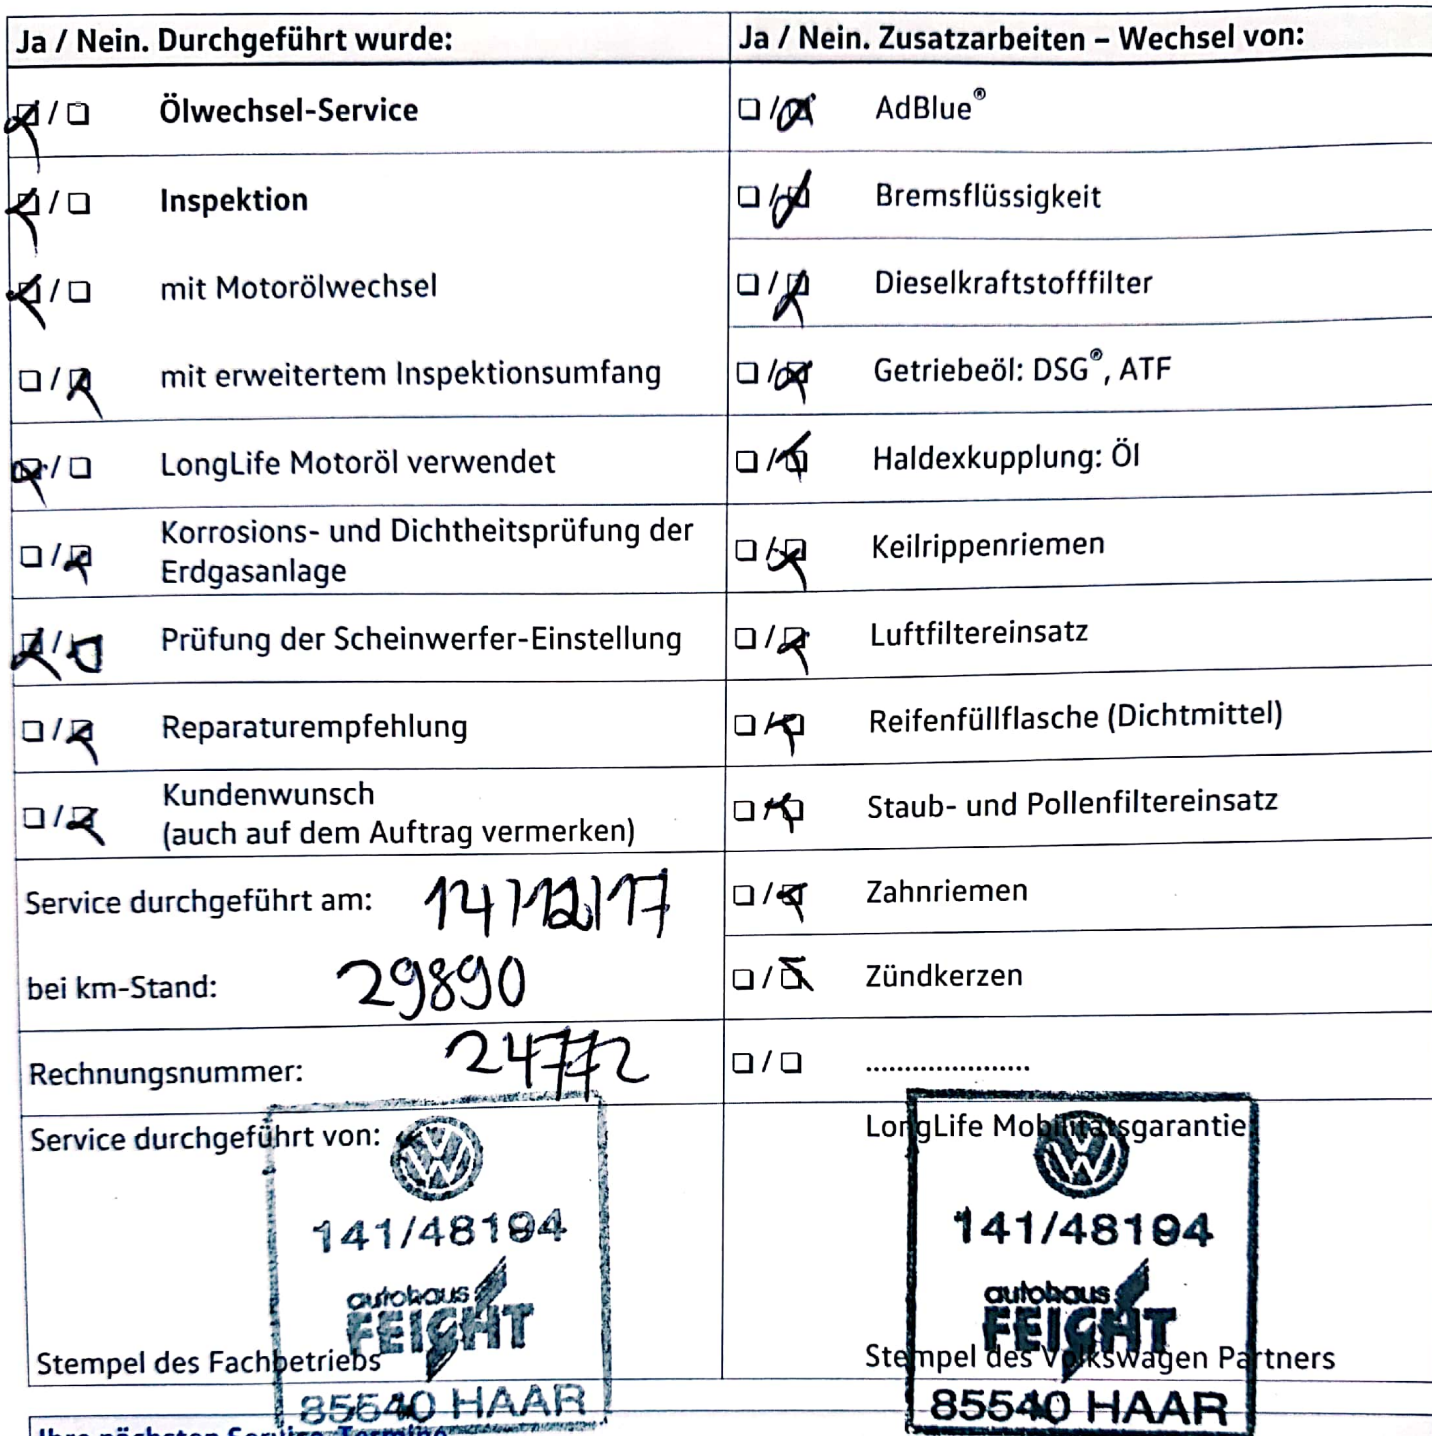 Ja / Nein. Durchgeführt wurde:
☑ / ☐ Ölwechsel-Service
☑ / ☐ Inspektion
☑ / ☐ mit Motorölwechsel
☐ / ☑ mit erweitertem Inspektionsumfang
☑ / ☐ LongLife Motoröl verwendet
☐ / ☑ Korrosions- und Dichtheitsprüfung der
Erdgasanlage
☑ / ☐ Prüfung der Scheinwerfer-Einstellung
☐ / ☑ Reparaturempfehlung
☐ / ☑ Kundenwunsch
(auch auf dem Auftrag vermerken)
Service durchgeführt am: 14/12/17
bei km-Stand: 29890
Rechnungsnummer: 24772
Service durchgeführt von:
141/48194
autohaus
FEICHT
Stempel des Fachbetriebs
85540 HAAR
Ja / Nein. Zusatzarbeiten – Wechsel von:
☐ / ☑ AdBlue®
☐ / ☑ Bremsflüssigkeit
☐ / ☑ Dieselkraftstofffilter
☐ / ☑ Getriebeöl: DSG®, ATF
☐ / ☑ Haldexkupplung: Öl
☐ / ☑ Keilrippenriemen
☐ / ☑ Luftfiltereinsatz
☐ / ☑ Reifenfüllflasche (Dichtmittel)
☐ / ☑ Staub- und Pollenfiltereinsatz
☐ / ☑ Zahnriemen
☐ / ☑ Zündkerzen
☐ / ☐ ......................
LongLife Mobilitätsgarantie
141/48194
autohaus
FEICHT
Stempel des Volkswagen Partners
85540 HAAR
Ihre nächsten Service-Termine